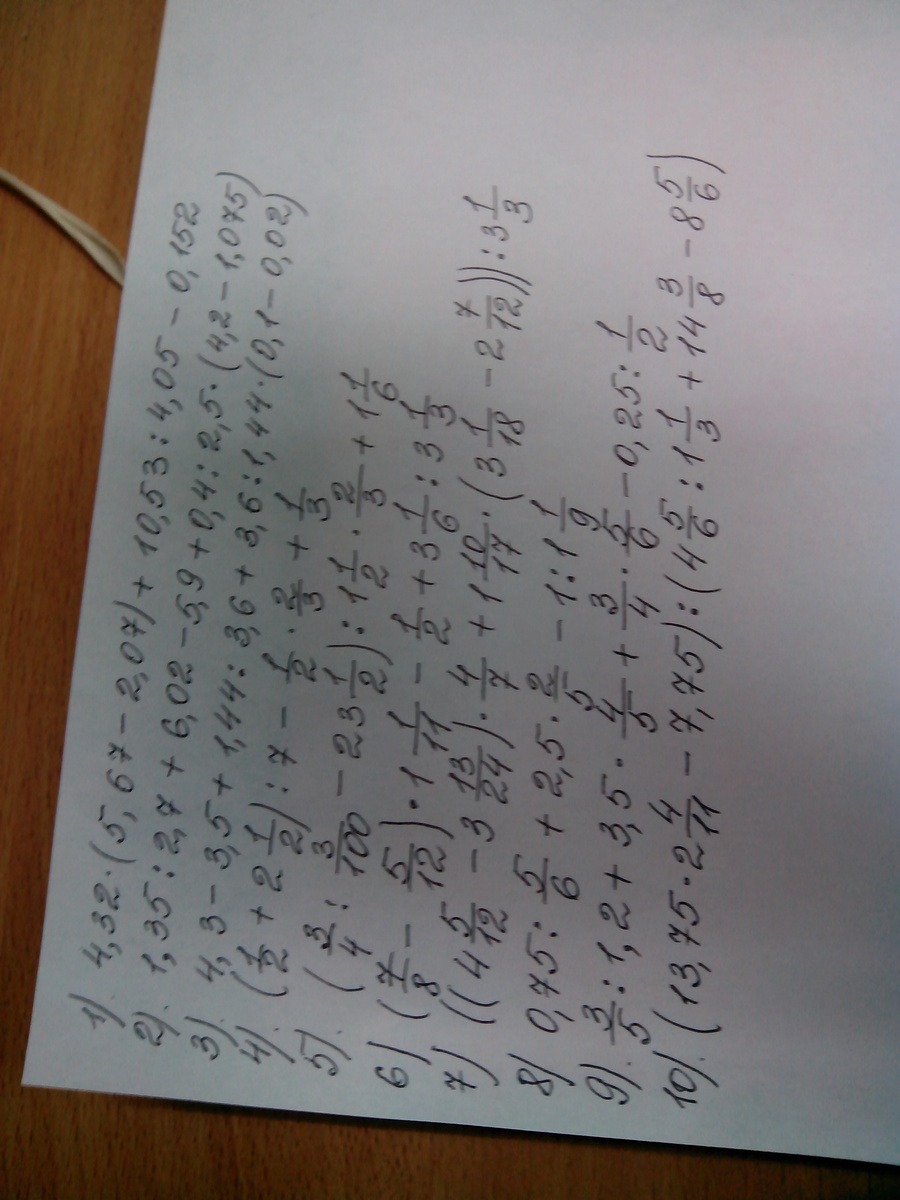 1). 4,32·(5,67-2,07)+10,53:4,05-0,152
2). 1,35:2,7+6,02-5,9+0,4:2,5·(4,2-1,075)
3). 4,3-3,5+1,44:3,6+3,6:1,44·(0,1-0,02)
4). (1/2+2 1/2):7-1/2·2/3+1/3
5). (3/4:3/100-23 1/2):1 1/2·2/3+1 1/6
6) (7/8-5/12)·1 1/11-1/2+3 1/6:3 1/3
7) ((4 5/12-3 13/24)·4/7+1 10/17·(3 1/18-2 7/12)):3 1/3
8) 0,75:5/6+2,5·2/5-1:1 1/9
9). 3/5:1,2+3,5·4/5+3/4·5/6-0,25:1/2
10). (13,75·2 4/11-7,75):(4 5/6:1 1/3+14 3/8-8 5/6)